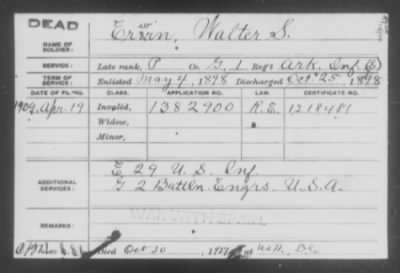 DEAD
NAME OF SOLDIER: Erwin, Walter S.
SERVICE: Late rank, P Co. G, 1 Reg't Ark. Inf. (S)
TERM OF SERVICE: Enlisted May 4, 1898 Discharged Oct. 25, 1898
DATE OF FILING. CLASS. APPLICATION NO. LAW. CERTIFICATE NO.
1909, Apr. 19 Invalid, 1382900 R.E. 1218481
Widow,
Minor,
ADDITIONAL SERVICES: E 29 U.S. Inf.
G 2 Battln Engrs. U.S.A.
WAR WITH SPAIN.
REMARKS:
Died Oct 20, 1927, at